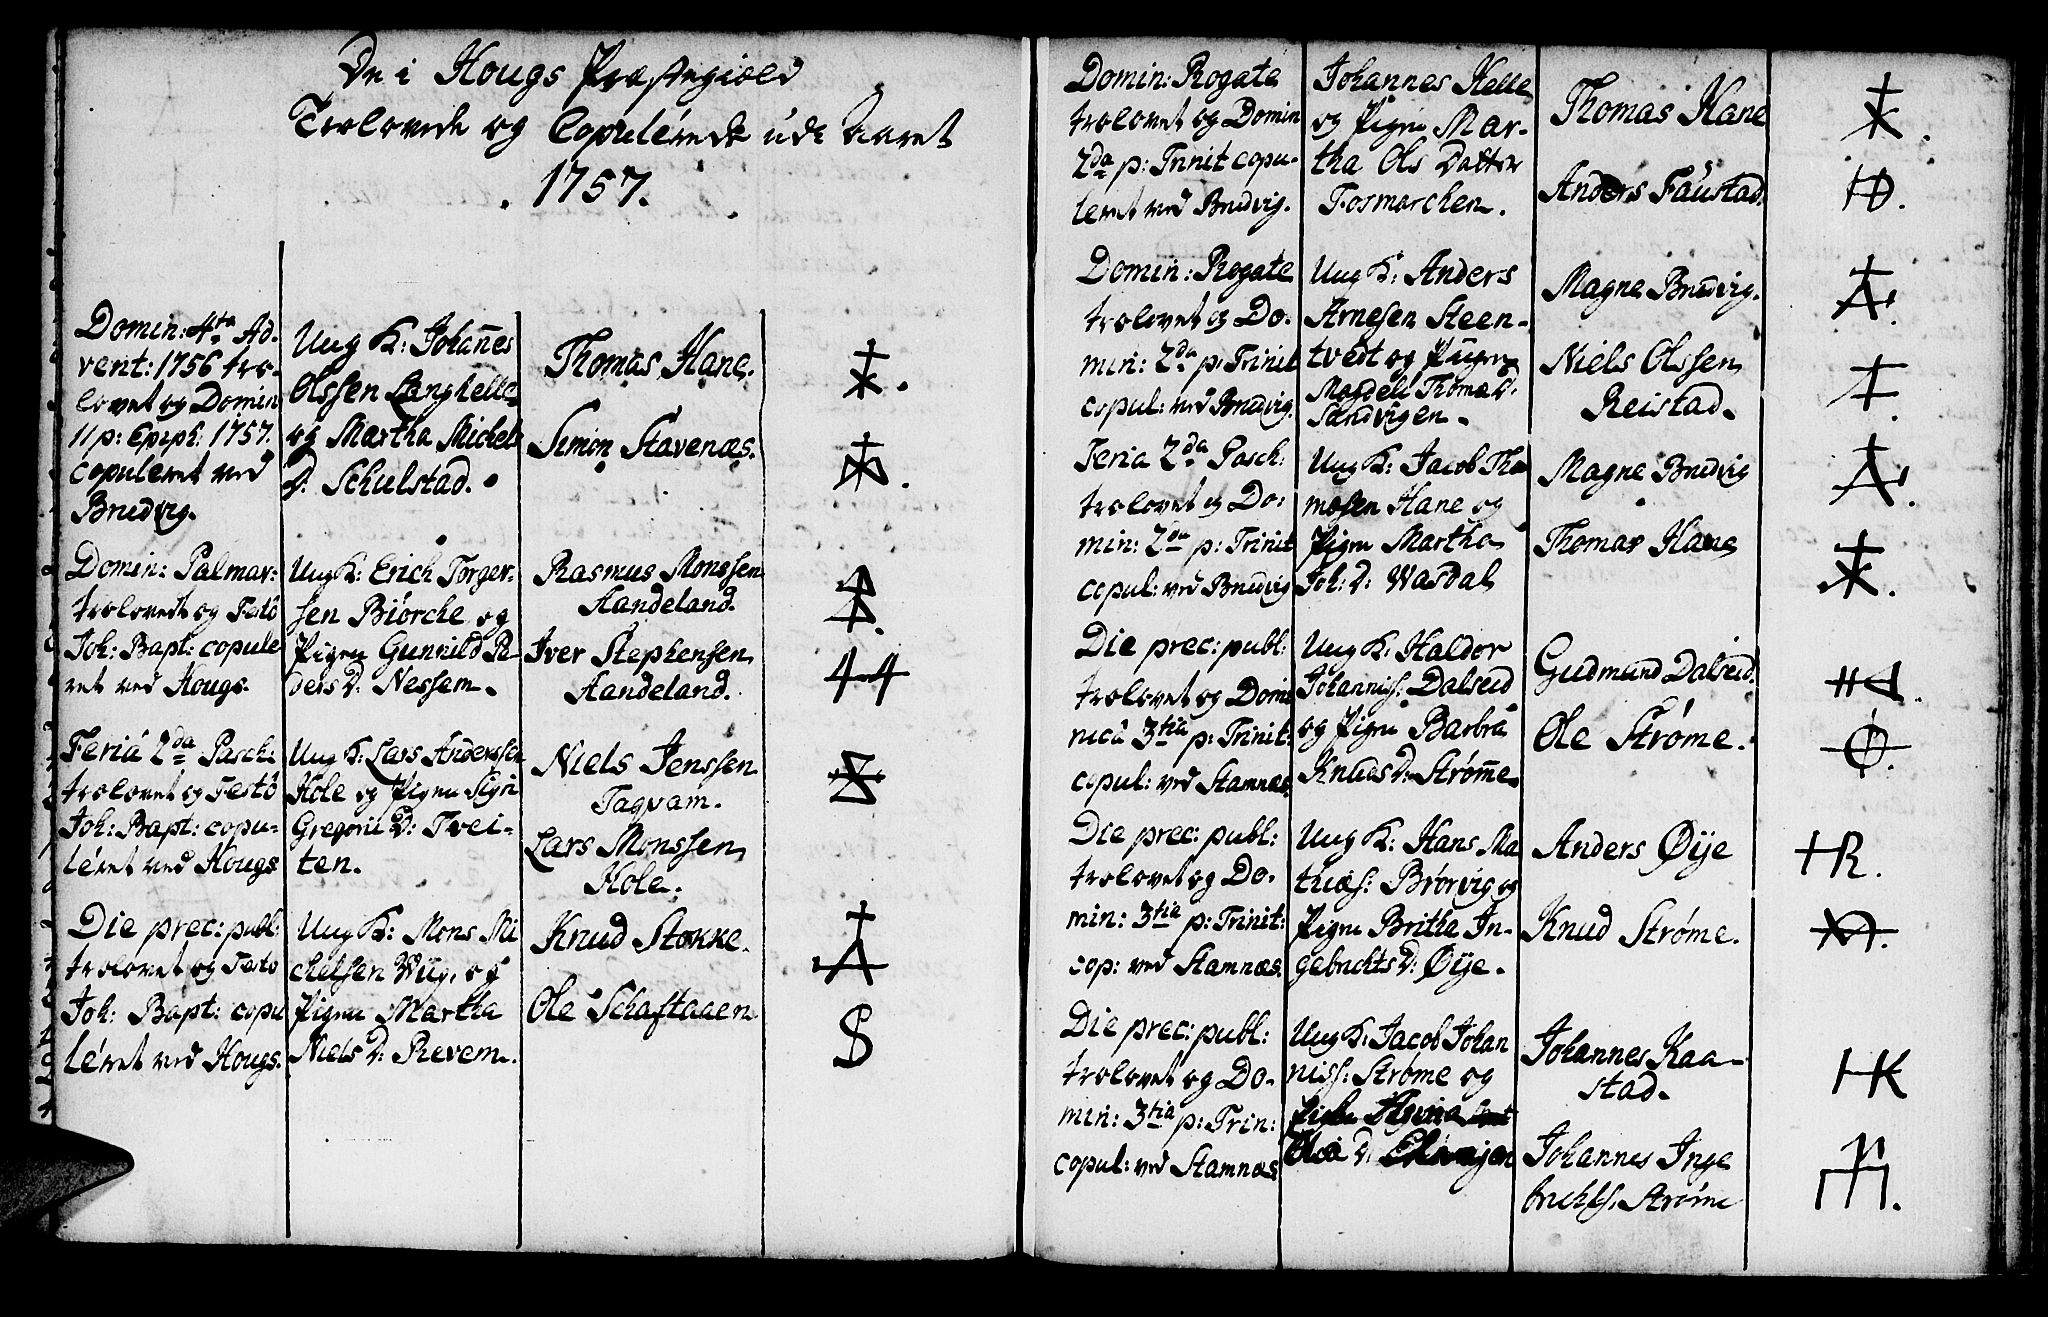 De i Hougs Præstegield
Trolovede og Copulerede udi Aaret
1757.
Domin: 4ta Ad-
vent: 1756 tro-
lovet og Domin
II p: Epiph: 1757.
copuleret ved
Brudvig.
Ung K: Johañes
Olssen Langhelle
og Martha Michels
D: Schulstad.
Thomas Hane.
Simon Stavenæs.
Domin: Palmar:
trolovedt og Festo
Joh: Bapt: copule
ret ved Hougs.
Ung K: Erich Torger-
sen Biørche og
Pigen Gunnild Pe-
ders D: Nessem.
Rasmus Monssen
Aandeland.
Iver Stephensen
Aandeland.
Feria 2da Pasch:
trolovet og Festo
Joh: Bapt: copu-
léret ved Hougs
Ung K: Lars Anderssen
Hole og Pigen Sigri
Gregorii D: Tvei-
ten.
Niels Jenssen
Taqvam.
Lars Monssen
Hole.
Die prec: publ:
trolovet og Festo
Joh: Bapt: copu
léret ved Hougs.
Ung K: Mons Mi
chelsen Wiig, og
Pigen Martha
Niels D: Revem.
Knud Stokke.
Ole Schaftaaen
S
Domin: Rogate
trolovet og Domin
2da p: Trinit copu-
leret ved Brudvig.
Johannes Helle
og Pigen Mar-
tha Ols Datter
Fosmarchen.
Thomas Hane
Anders Faustad.
HD.
Domin: Rogate
trolovet og Do-
min: 2da p: Trinit
copul: ved Brudvig.
Ung K: Anders
Arnesen Steen-
tvedt og Pigen
Magdeli Thomæ D:
Sandvigen.
Magne Brudvig.
Niels Olssen
Reistad.
Feria 2da Pasch:
trolovet og Do-
min: 2da p: Trinit
copul: ved Brudvig
Ung K: Jacob Tho
mæsen Hane og
Pigen Martha
Joh: D: Wasdal
Magne Brudvig
Thomas Hane
Die prec: publ:
trolovet og Domi
nica 3tia p: Trinit:
copul: ved Stamnæs.
Ung K: Haldor
Johanniss: Dalseid
og Pigen Barbra
Knuds D: Strøm̄e
Gudmund Dalseid.
Ole Strøme.
Die prec: publ:
trolovet og Do-
min: 3tia p: Trinit:
cop: ved Stamnæs.
Ung K: Hans Ma
thiæs: Brørvig og
Pigen Britha In-
gebrichts D: Øije.
Anders Øije
Knud Strøme.
HR.
Die prec: publ:
trolovet og Do-
min: 3tia p: Trin:
copul: ved Stamnæs
Ung K: Jacob Johan
niss: Strøme og
Pigen
D:
Johannes Kaa-
stad.
Johannes Inge
brichts: Strøme
HK